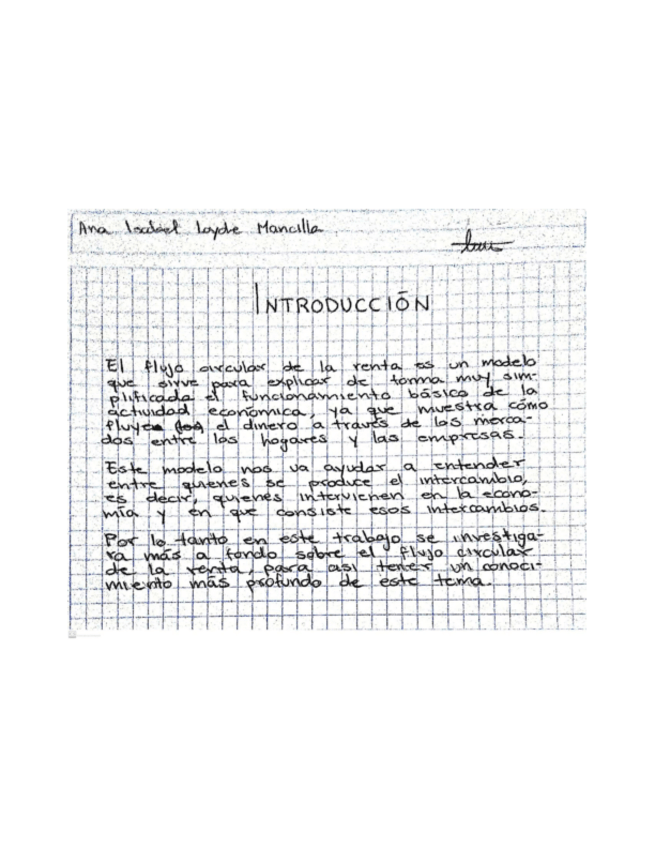 Ana Isabel Layde Mancilla
INTRODUCCIÓN
El flujo circular de la renta es un modelo
que sirve para explicar de forma muy sim-
plificada el funcionamiento básico de la
actividad económica, ya que muestra cómo
fluye el dinero a través de los merca-
dos entre los hogares y las empresas.
Este modelo nos va ayudar a entender
entre quienes se produce el intercambio,
es decir, quienes intervienen en la econo-
mía y en que consiste esos intercambios.
Por lo tanto en este trabajo se investiga-
ra más a fondo sobre el flujo circular
de la renta, para asi tener un conoci-
miento más profundo de este tema.